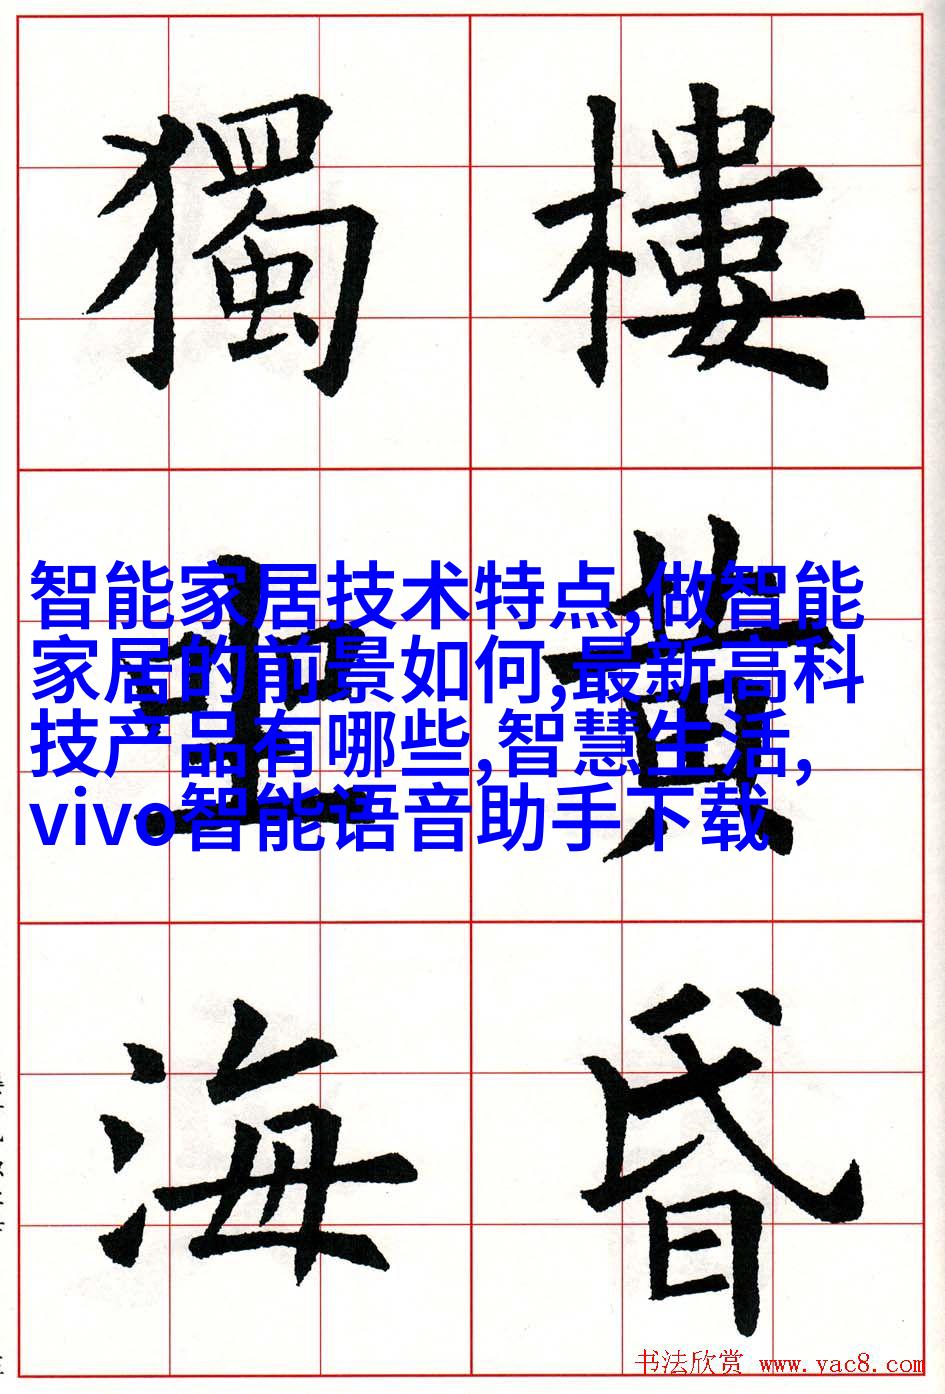 樓黃昏
獨坐海
智能家居技术特点,做智能
家居的前景如何,最新高科
技产品有哪些,智慧生活,
vivo智能语音助手下载
书法欣赏 www.yac8.com